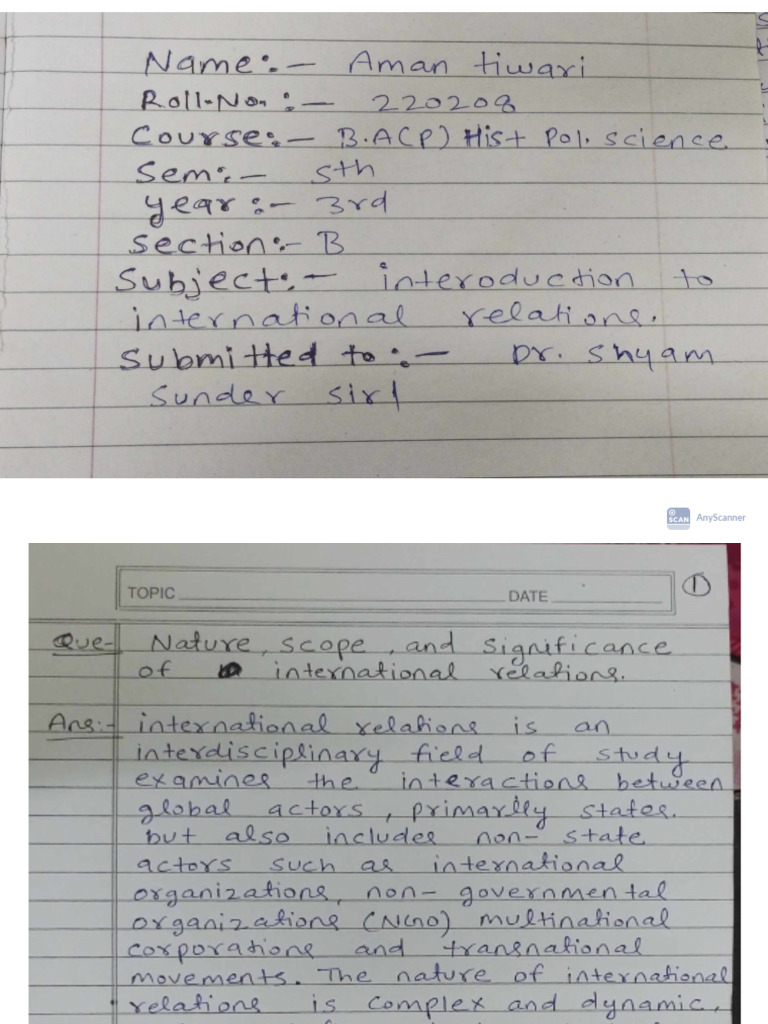 Name:- Aman tiwari
Roll-No. :- 220208
Course:- B.A(P) Hist Pol. science
Sem:- 5th
year:- 3rd
section:- B
Subject:- interoduction to
international relations.
Submitted to:- Dr. Shyam
Sunder sir
SCAN AnyScanner
TOPIC DATE 1
Que- Nature, scope, and significance
of international relations.
Ans:- international relations is an
interdisciplinary field of study
examines the interactions between
global actors, primarily states.
but also includes non- state
actors such as international
organizations, non- governmental
organizations (NGO) multinational
corporations and transnational
movements. The nature of international
relations is complex and dynamic,